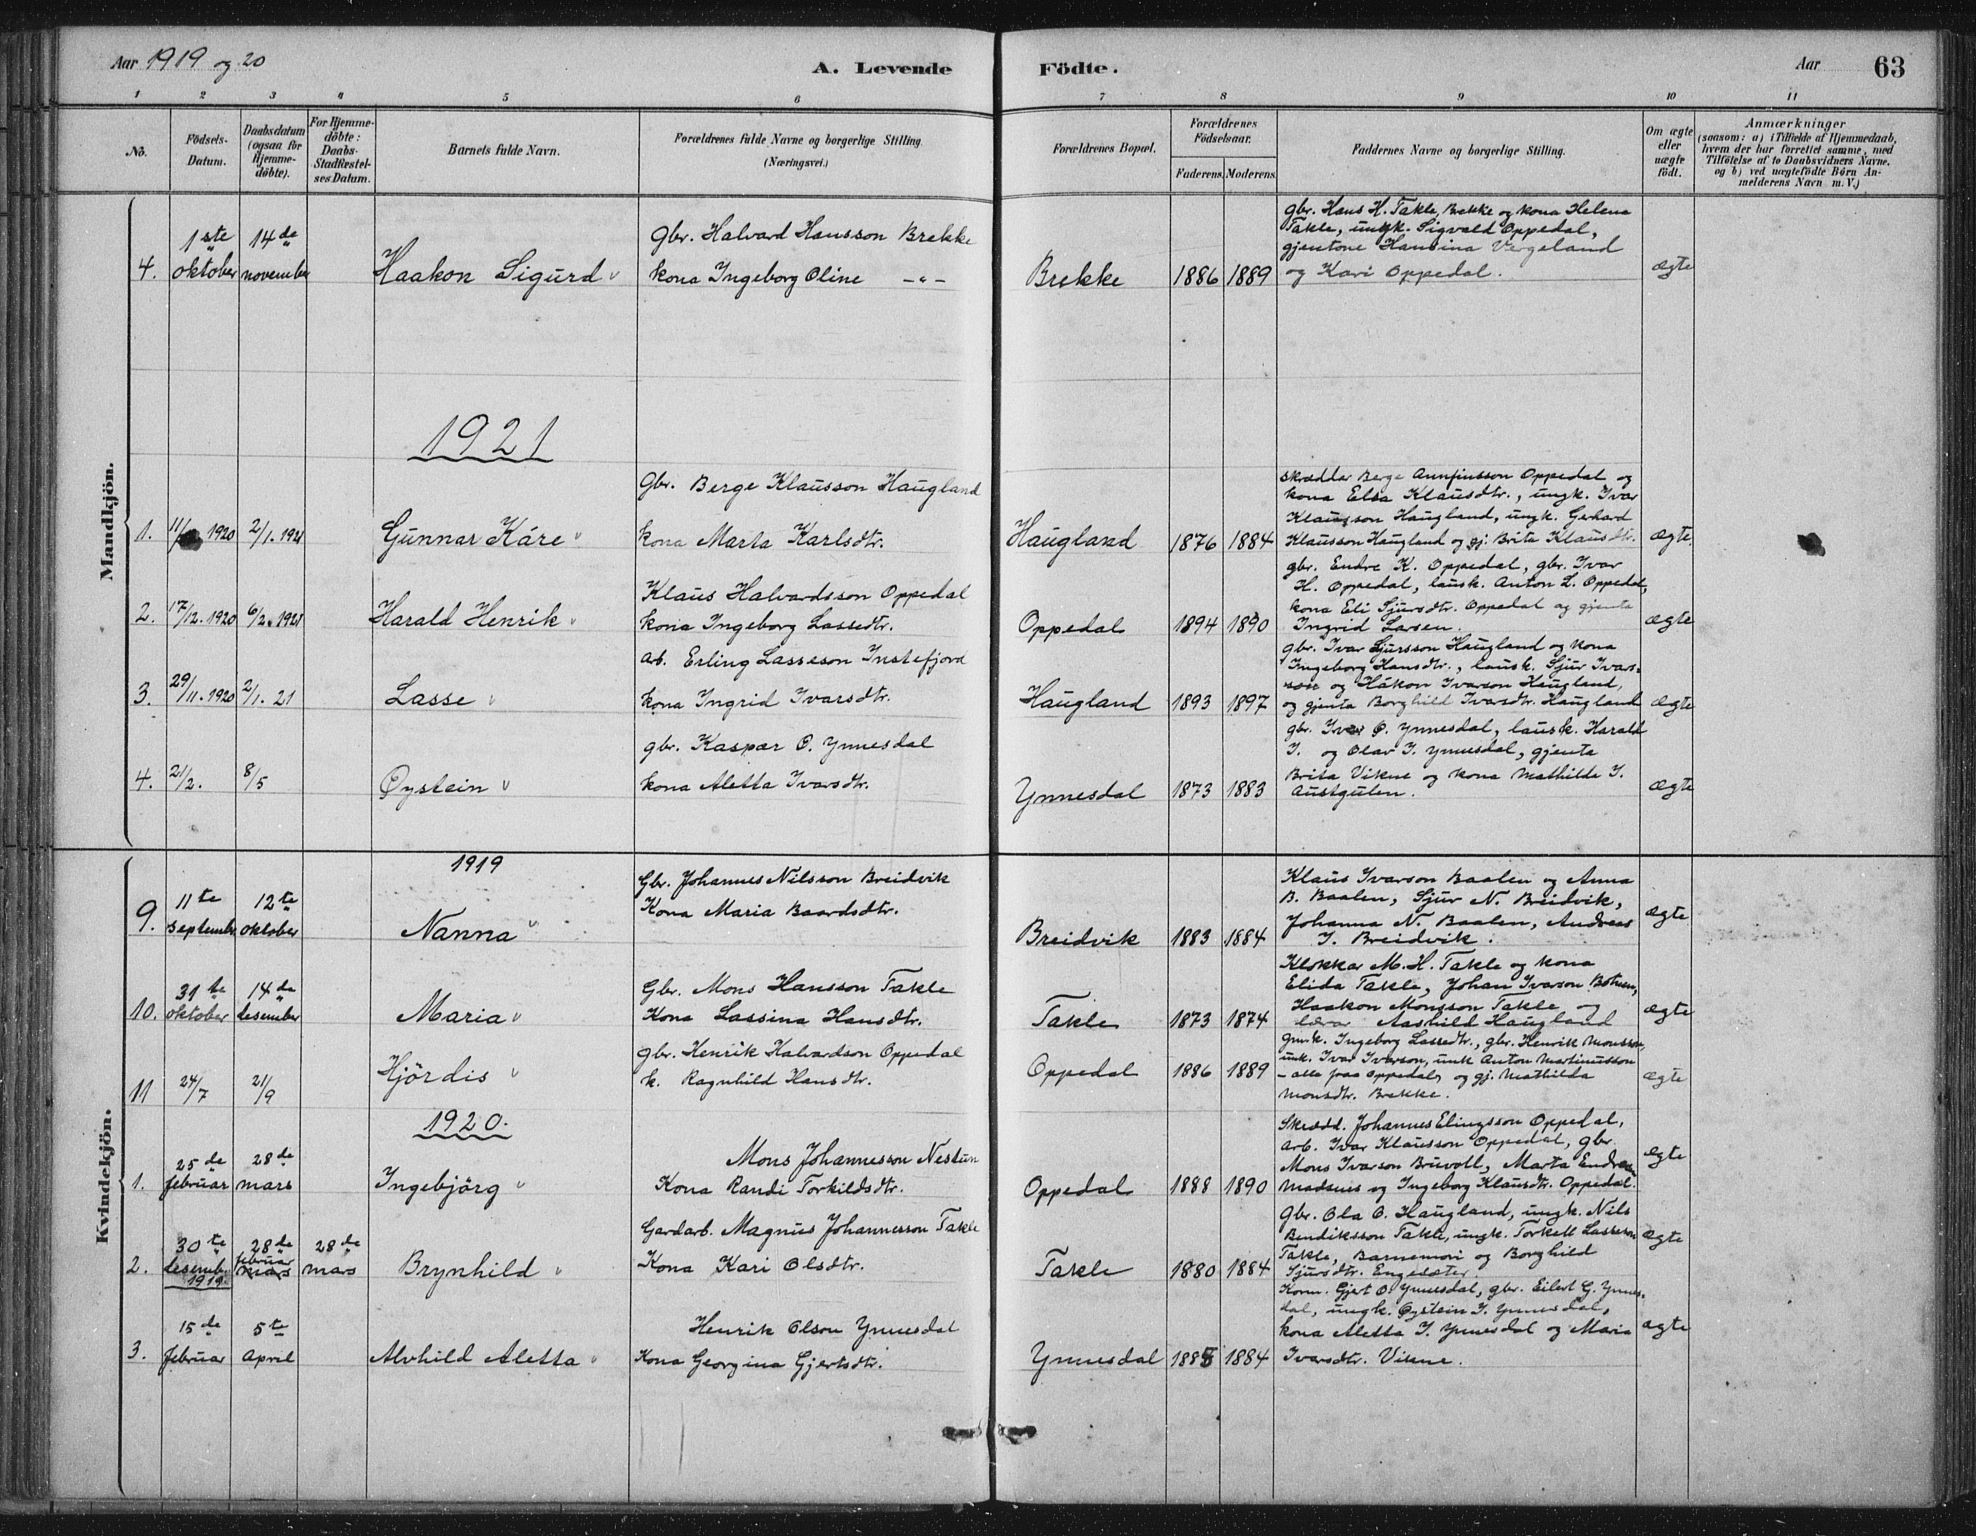 Aar 1919 og 20
A. Levende Födte.
Aar 63
1 2 3 4 5 6 7 8 9 10 11
No.
Födsels-Datum.
Daabsdatum (ogsaa for Hjemme-döbte).
For Hjemme-döbte: Daabs-Stadfæstel-ses Datum.
Barnets fulde Navn.
Forældrenes fulde Navne og borgerlige Stilling. (Næringsvei.)
Forældrenes Bopæl.
Forældrenes Födselsaar.
Faderens. Moderens.
Faddernes Navne og borgerlige Stilling.
Om ægte eller uægte födt.
Anmærkninger
(saasom: a) i Tilfælde af Hjemmedaab, hvem der har forrettet samme, med Tilföielse af to Daabsvidners Navne. og b) ved uægtefödte Börn Anmelderens Navn m. V.)
Mandkjön.
4. 1ste oktober 14de november Haakon Sigurd
gbr. Halvard Hansson Brekke
kona Ingeborg Oline -"-
Brekke 1886 1889
gbr. Hans H. Takle, Brekke og kona Helene
Takle, ungk. Sigvald Oppedal,
gjentone Hansina Vergeland
og Kari Oppedal.
ægte
1921
1. 11/ 1920 2/1. 1921 Gunnar Káre
gbr. Berge Klausson Haugland
kona Marta Karlsdtr.
Haugland 1876 1884
skræddar Berge Annfinsson Oppedal og
kona Elsa Klausdtr., ungk. Ivar
Klausson Haugland, ungk. Gerhard
Klausson Haugland og gj. Brita Klausdtr.
ægte
2. 17/12. 1920 6/2. 1921 Harald Henrik
Klaus Halvardsson Oppedal
kona Ingeborg Lassedtr.
Oppedal 1894 1890
gbr. Endre K. Oppedal, gbr. Ivar
H. Oppedal, lausk. Anton L. Oppedal,
kona Eli Sjursdtr. Oppedal og gjenta
Ingrid Larsen.
ægte
3. 29/11. 1920 2/1. 21 Lasse
arb. Erling Lasseson Instefjord
kona Ingrid Ivarsdtr.
Haugland 1893 1897
gbr. Ivar Sjursson Haugland og kona
Ingeborg Hansdtr., lausk. Sjur Ivars-
son og Håkon Ivarson Haugland,
og gjenta Borghild Ivarsdtr. Haugland
ægte
4. 21/2. 8/5 Øystein
gbr. Kaspar O. Ynnesdal
kona Aletta Ivarsdtr.
Ynnesdal 1873 1883
gbr. Ivar O. Ynnesdal, lausk. Harald
I. og Olav I. Ynnesdal, gjenta
Brita Vikne og kona Mathilde I.
Austgulen.
ægte
Kvindekjön.
1919
9. 11te september 12te oktober Nanna
Gbr. Johannes Nilsson Breidvik
Kona Maria Baardsdtr.
Breidvik 1883 1884
Klaus Ivarson Baalen og Anna
B. Baalen, Sjur N. Breidvik,
Johanna N. Baalen, Andreas
I. Breidvik.
ægte
10. 31te oktober 14de desember Maria
Gbr. Mons Hansson Takle
Kona Lassina Hansdtr.
Takle 1873 1874
Klokkar M. H. Takle og kona
Elida Takle, Johan Ivarson Botnen,
Haakon Monsson Takle og
lærar Aashild Haugland
ægte
11 24/7 21/9 Hjördis
gbr. Henrik Halvardson Oppedal
k. Ragnhild Hansdtr.
Oppedal 1886 1889
Ingeborg Lassedtr., gbr. Henrik Monsson,
unk. Ivar Ivarson, unk Anton Martinusson
- alle paa Oppedal, og gj. Mathilda
Monsdtr. Brekke.
ægte
1920.
1. 25de februar 28de mars Ingebjörg
Mons Johannesson Nestun
Kona Randi Torkildsdtr.
Oppedal 1888 1890
Skrædd. Johannes Elingsson Oppedal,
arb. Ivar Klausson Oppedal, gbr.
Mons Ivarson Bruvoll, Marta
Madsnes og Ingeborg Klausdtr. Oppedal.
ægte
2. 30te desemb. 1919. 28de februar mars 28de mars Brynhild
Gardarb. Magnus Johannesson Takle
Kona Kari Olsdtr.
Takle 1880 1884
Gbr. Ola O. Haugland, ungk. Nils
Bendiksson Takle, ungk. Torkell Lasseson
Takle, Barnemori og Borghild
Sjursdtr. Engesæter.
ægte
3. 15de februar 5te april Alvhild Aletta
Henrik Olson Ynnesdal
Kona Georgina Gjertsdtr.
Ynnesdal 1885 1884
Korm. Gjert O. Ynnesdal, gbr. Eilert G. Ynnes-
dal, ungk. Øystein I. Ynnesdal,
kona Aletta I. Ynnesdal og Maria
Ivarsdtr. Vikne.
ægte